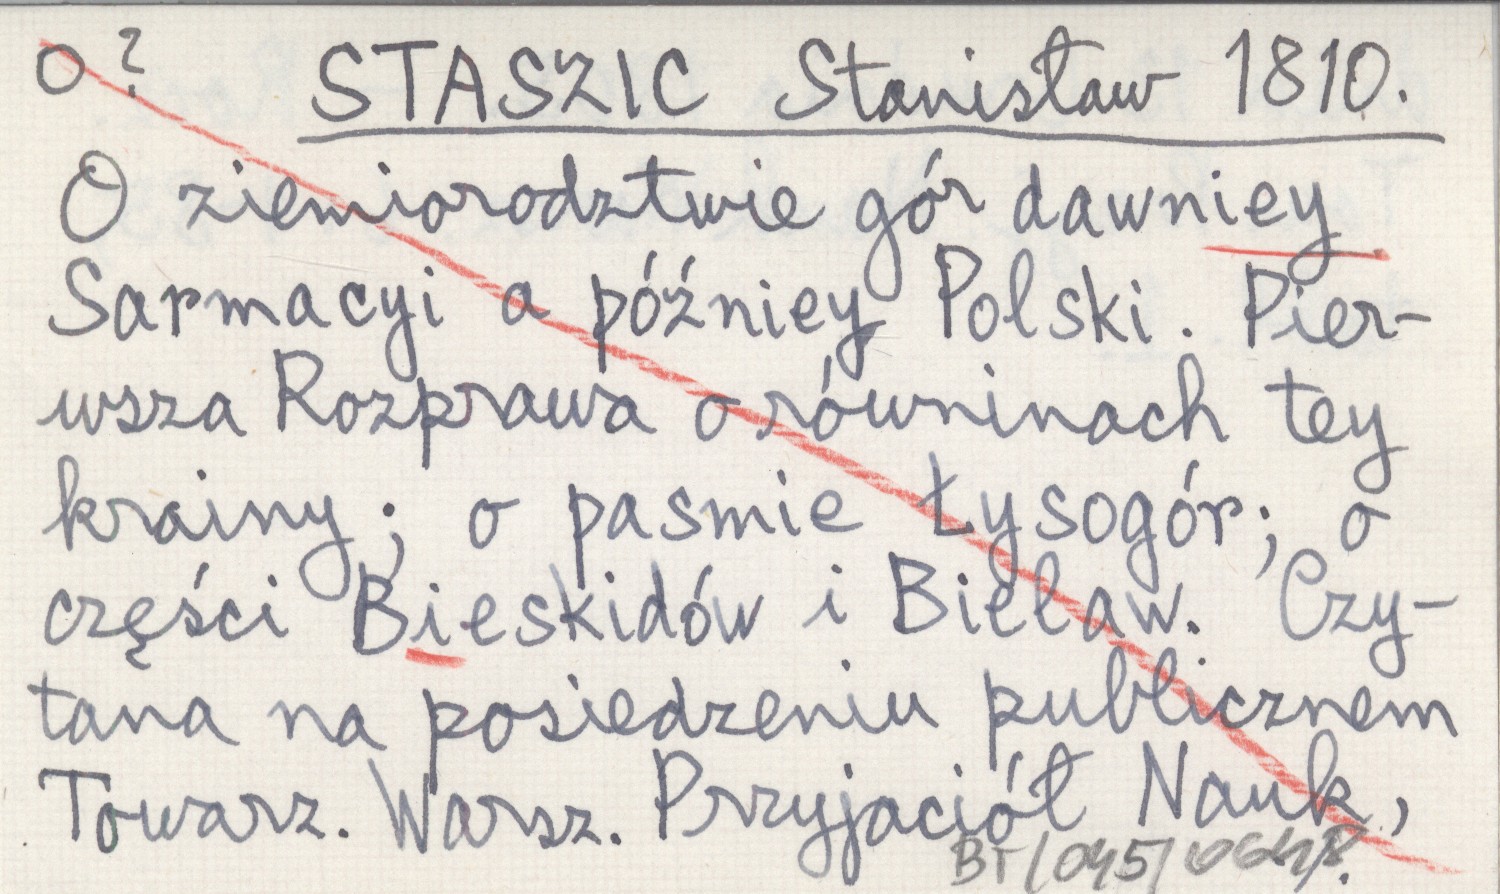 o ? STASZIC Stanisław 1810.
O ziemiorodztwie gór dawniey
Sarmacyi a późniey Polski. Pier-
wsza Rozprawa o równinach tey
krainy; o pasmie Łysogór; o
części Bieskidów i Bielaw. Czy-
tana na posiedzeniu publicznem
Towarz. Warsz. Przyjaciół Nauk,
BT/045/